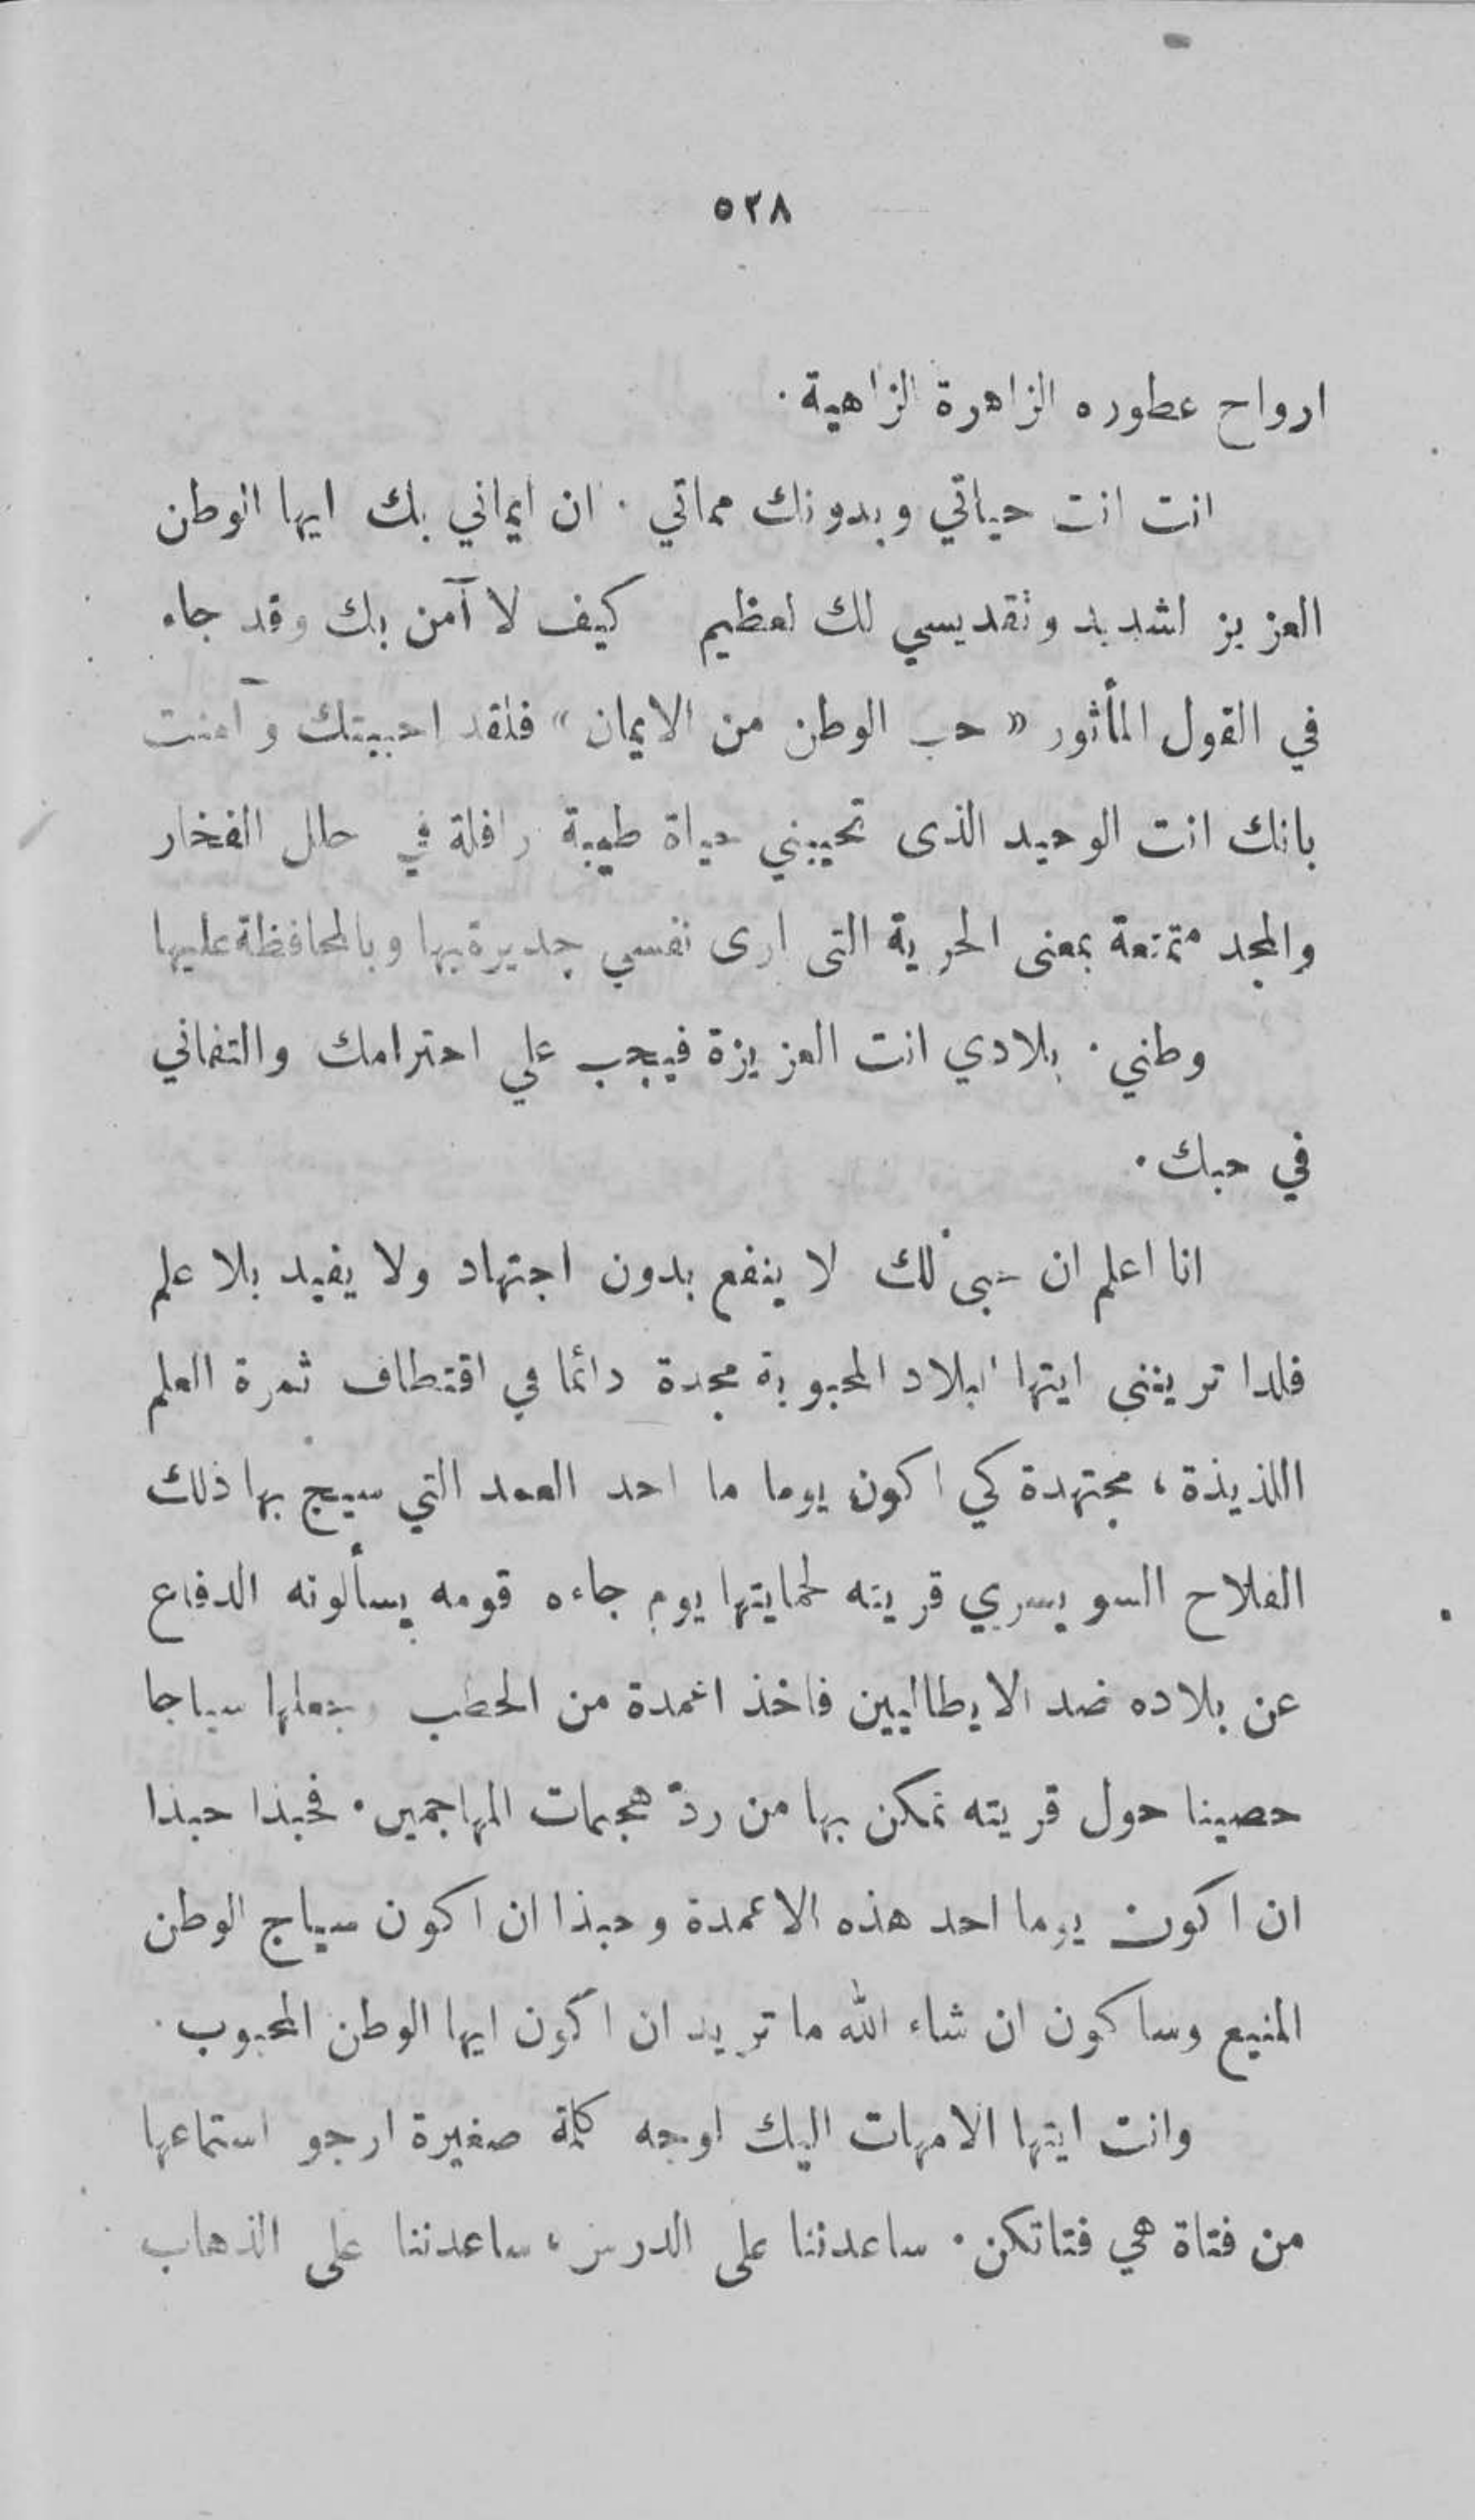 ٥٢٨
ارواح عطوره الزاهرة الزاهية.
انت انت حياتي وبدونك مماتي. ان ايماني بك ايها الوطن
العزيز لشديد وتقديسي لك لعظيم كيف لا آمن بك وقد جاء
في القول المأثور « حب الوطن من الايمان » فلقد احببتك وآمنت
بانك انت الوحيد الذى تحييني حياة طيبة رافلة في حلل الفخار
والمجد متمتعة بمعنى الحرية التى ارى نفسي جديرة بها وبالمحافظة عليها
وطني. بلادي انت العزيزة فيجب علي احترامك والتفاني
في حبك.
انا اعلم ان حبى لك لا ينفع بدون اجتهاد ولا يفيد بلا علم
فلذا ترينني ايتها البلاد المحبوبة مجدة دائما في اقتطاف ثمرة العلم
اللذيذة، مجتهدة كي اكون يوما ما احد العمد التي سيج بها ذلك
الفلاح السويسري قريته لحمايتها يوم جاءه قومه يسألونه الدفاع
عن بلاده ضد الايطاليين فاخذ اعمدة من الحطب وجعلها سياجا
حصينا حول قريته تمكن بها من ردّ هجمات المهاجمين. فحبذا حبذا
ان اكون يوما احد هذه الاعمدة وحبذا ان اكون سياج الوطن
المنيع وساكون ان شاء الله ما تريد ان اكون ايها الوطن المحبوب.
وانت ايتها الامهات اليك اوجه كلمة صغيرة ارجو استماعها
من فتاة هي فتاتكن. ساعدننا على الدرس، ساعدننا على الذهاب